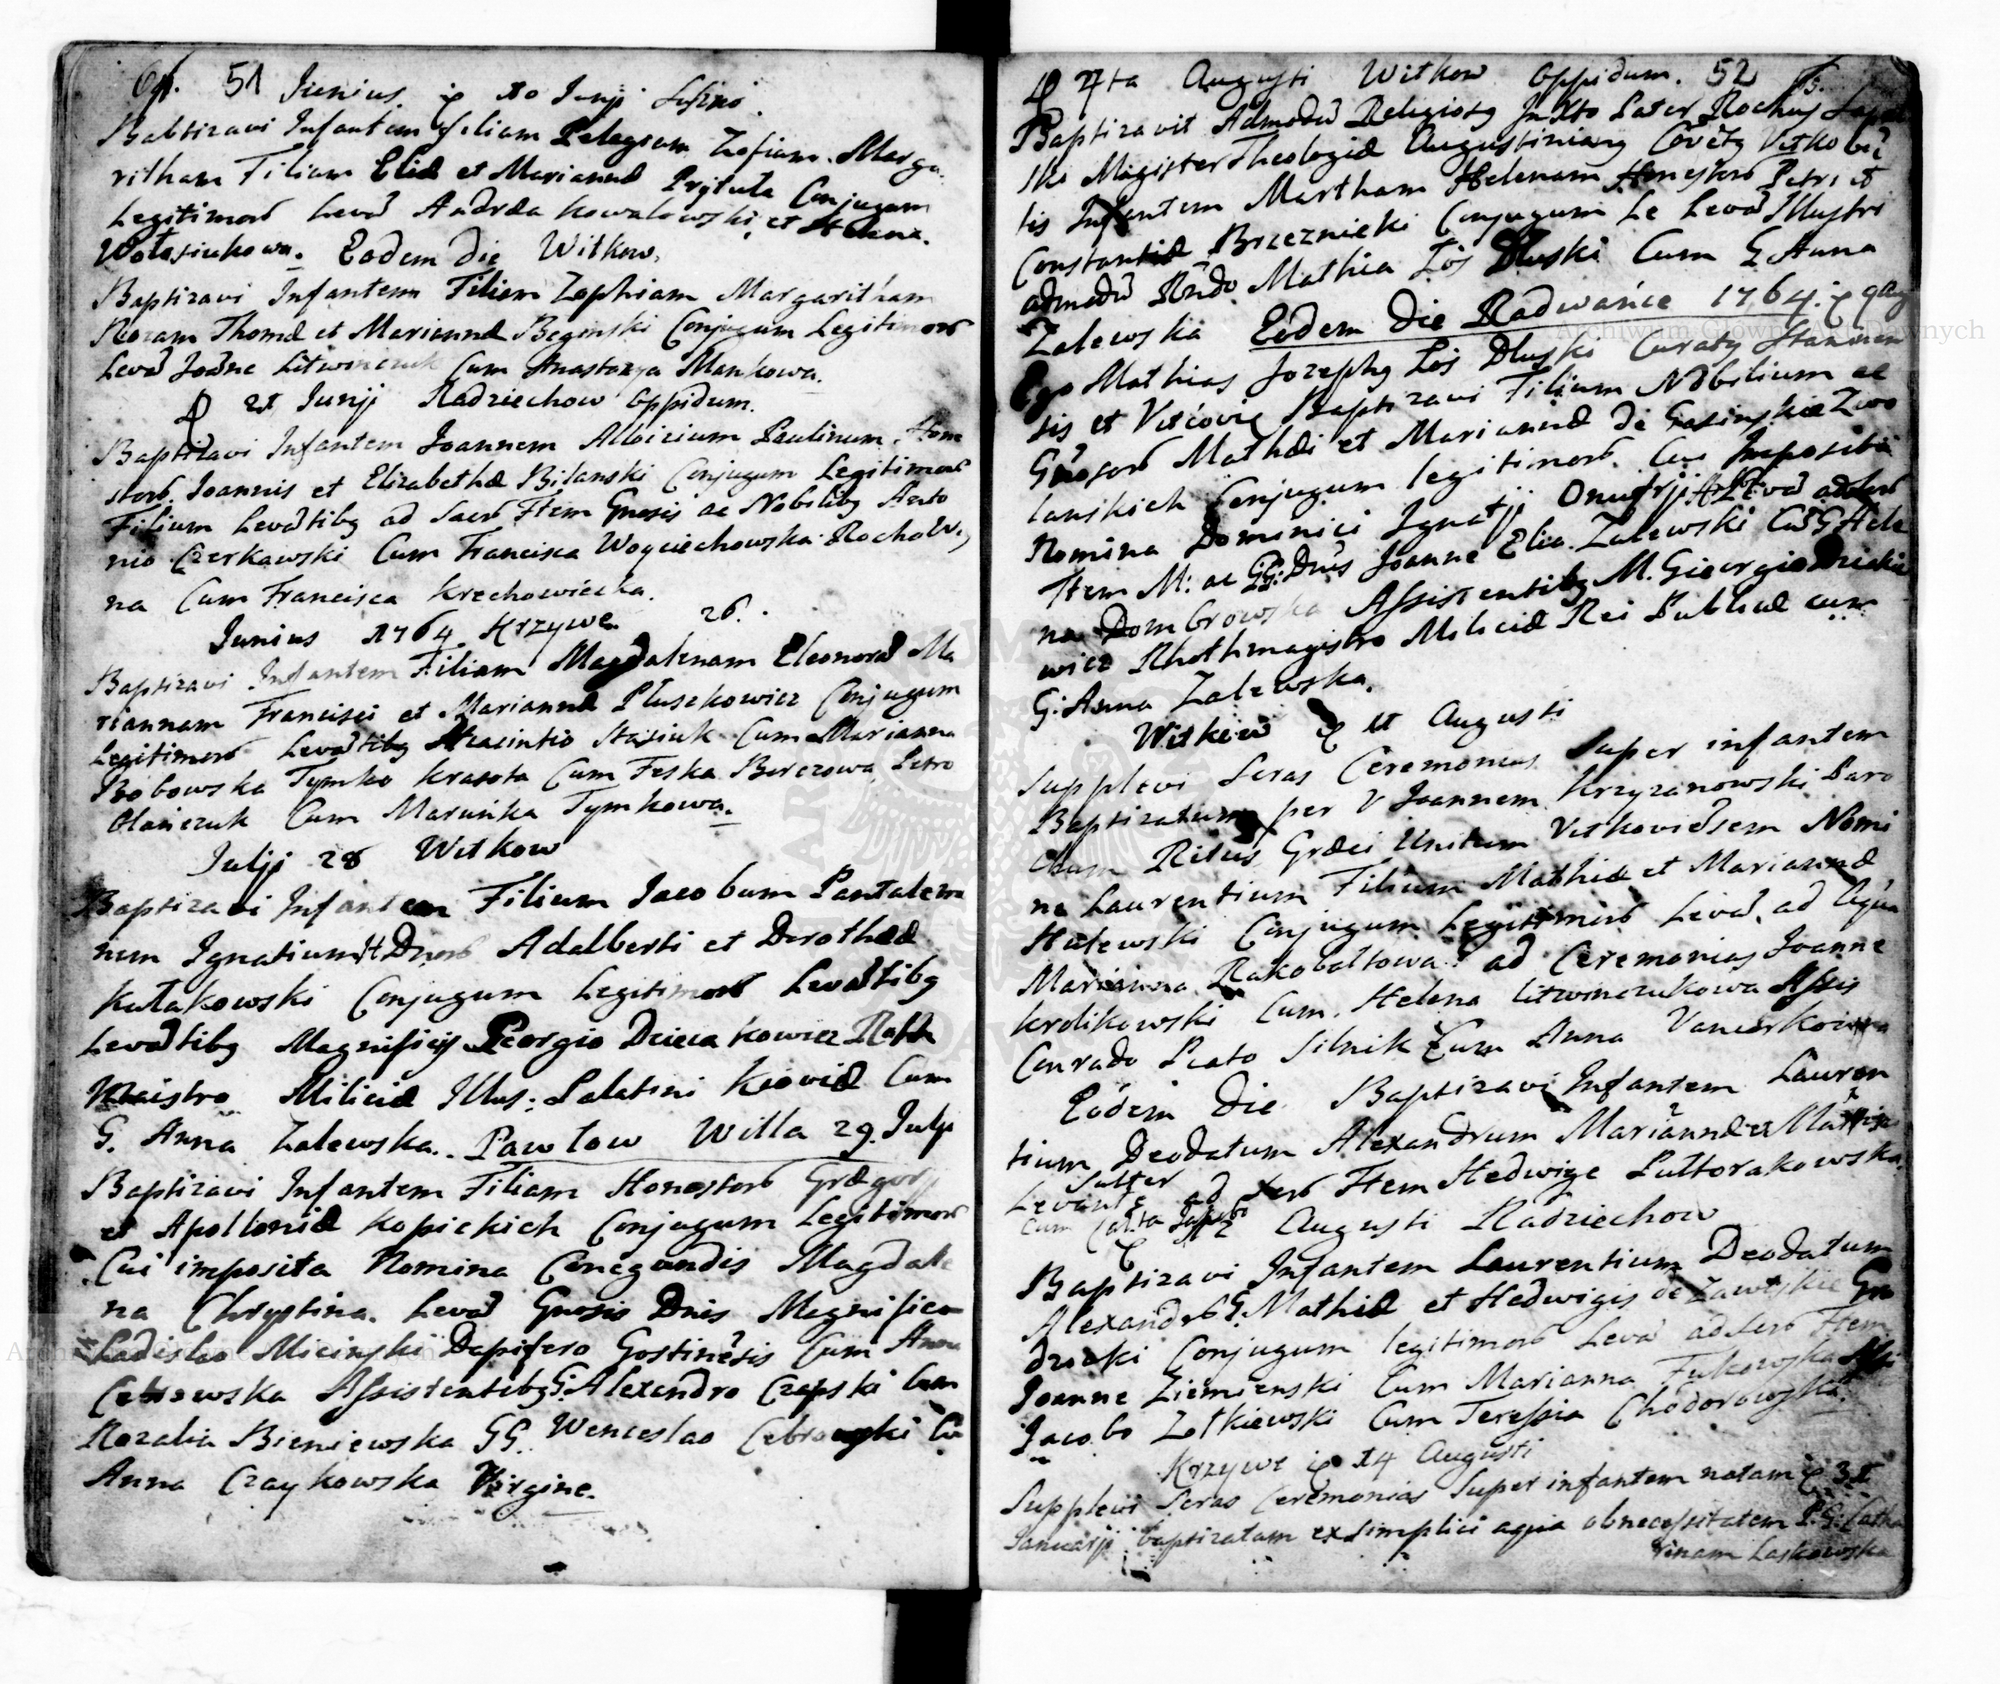 64. 51 Iunius ę 10 Junji Suszno.
Babtizavi Infantem filiam Pelagiam Zofiam Marga
ritham Filiam Eliæ et Mariannæ Prytuła Conjugum
Legitimorb Levã Andræa Kowalowski, et Helena
Wołosiukowa. Eodem die Witkow.
Baptizavi Infantem Filiam Zophiam Margaritham
Rozam Thomæ et Mariannæ Beginski Conjugum Legitimorb
Levã Joãne Litwinczuk Cum Anastazya Mankowa.
21 Junji Radziechow Oppidum.
Baptizavi Infantem Joannem Alloizium Paulinum, Hone
storb. Joannis et Elizabethæ Bilanski Conjugum Legitimorb
Filium Levãtibg ad Sacrb Ftem Gnosis ac Nobilibg Anto
nio Czerkawski Cum Francisca Woyciechowska. Rocho W.,
na Cum Francisca Krzechowiecka.
Junius 1764 Krzywe 26.
Baptizavi Infantem Filiam Magdalenam Eleonorã Ma
riannam Francisci et Mariannæ Pluszkowicz Conjugum
Legitimorb Levãtibg Hyacintio Stasiuk Cum Marianna
Bobowska Tymko Krasota Cum Feska Berezowa, Petro
Olańczuk Cum Maruńka Tymkowa.
Julji 28 Witkow
Baptizavi Infantem Filium Jacobum Pantaleno
num Ignatium H Dnorb Adalberti et Dorotheæ
Kułakowski Conjugum Legitimorb Levãtibg
Levãtibg Magnificis Georgio Dzieiakowicz Roth
maistro Miliciæ Illus: Palatini Kioviæ Cum
G. Anna Zalewska. Pawłow Willa 29. Julji
Baptizavi Infantem Filiam Honestorb Grægorji
et Apolloniæ Kopickich Conjugum Legitimorb
Cui imposita Nomina Cunegundis Magdale
na Chrystina. Levã Gnosis Dnis Magnifico
Ladislao Micinski Dapifero Gostinẽsis Cum Anna
Cebrowska Assistentibg G. Alexandro Czapski Cum
Rozalia Bieniewska GG. Wenceslao Cebrowski Cu
Anna Czaykowska Virgine.
7ta Augusti Witkow Oppidum. 52 65.
Baptizavit Admodũ Religiosg In Xto Pater Rochus
ski Magister Theologiæ Augustiniang Covẽtg Vitkoviẽ
tis Infantem Martham Helenam Honestorb Petri et
Constantiæ Brzeznicki Conjugum Le Levã Illustri
admodũ Rñdo Mathia Łoś Dłuski Cum G Anna
Zalewska Eodem die Radwańce 1764. ę 9 Aug
Ego Mathias Jozephg Łoś Dłuski Curatg Staninen
sis et Vitcovię Baptizavi Filium Nobilium ac
Gñosorb Mathæi et Mariannæ de Gasinskie Zwo
lanskich Conjugum legitimorb. Cui Imposita
Nomina Dominici Ignatji Onufrji Levã ad Sacrb
Ftem M: ac GG: Dñis Joanne Elia Zalewski Cũ G Hele
na Dombrowska Assistentibg M. Georgio Dzieiako
wicz Rhothmagistro Miliciæ Rei Publicæ cum
G: Anna Zalewska.
Witkow ę 11 Augusti
Supplevi Seras Ceremonias Super infantem
Baptizatum per V Joannem Krzyzanowski Paro
chum Ritus Græci Unitum Vitkoviẽsem Nomi
ne Laurentium Filium Mathiæ et Mariannæ
Hulewski Conjugum Legitimorb Levã, ad Aqua
Marianna Rakobołtowa: ad Ceremonias Joanne
Krolikowski Cum Helena Litwinczukowa Assis
Conrado Piato Silnik Cum Anna Vancerkowna
Eodem Die Baptizavi Infantem Lauren
tium Deodatum Alexandrum Mariannæ et
Levante ad Sacrb Ftem Hedwige Pułtorakowska
12 Augusti Radziechow
Baptizavi Infantem Laurentium Deodatum
Alexandrb G. Mathiæ et Hedwigis de Zawskie Gru
dzicki Conjugum legitimorb Levã ad Sacrb Ftem
Joanne Ziemienski Cum Marianna Fukowska Assi
Jacobo Zołkiewski Cum Teressia Chodorowska.
Krzywe ę 14 Augusti
Supplevi Seras Ceremonias Super infantem natam ę 31
Januarji baptizatam ex simplici aqua ob necessitatem P. G: Catha
rinam Laskowska